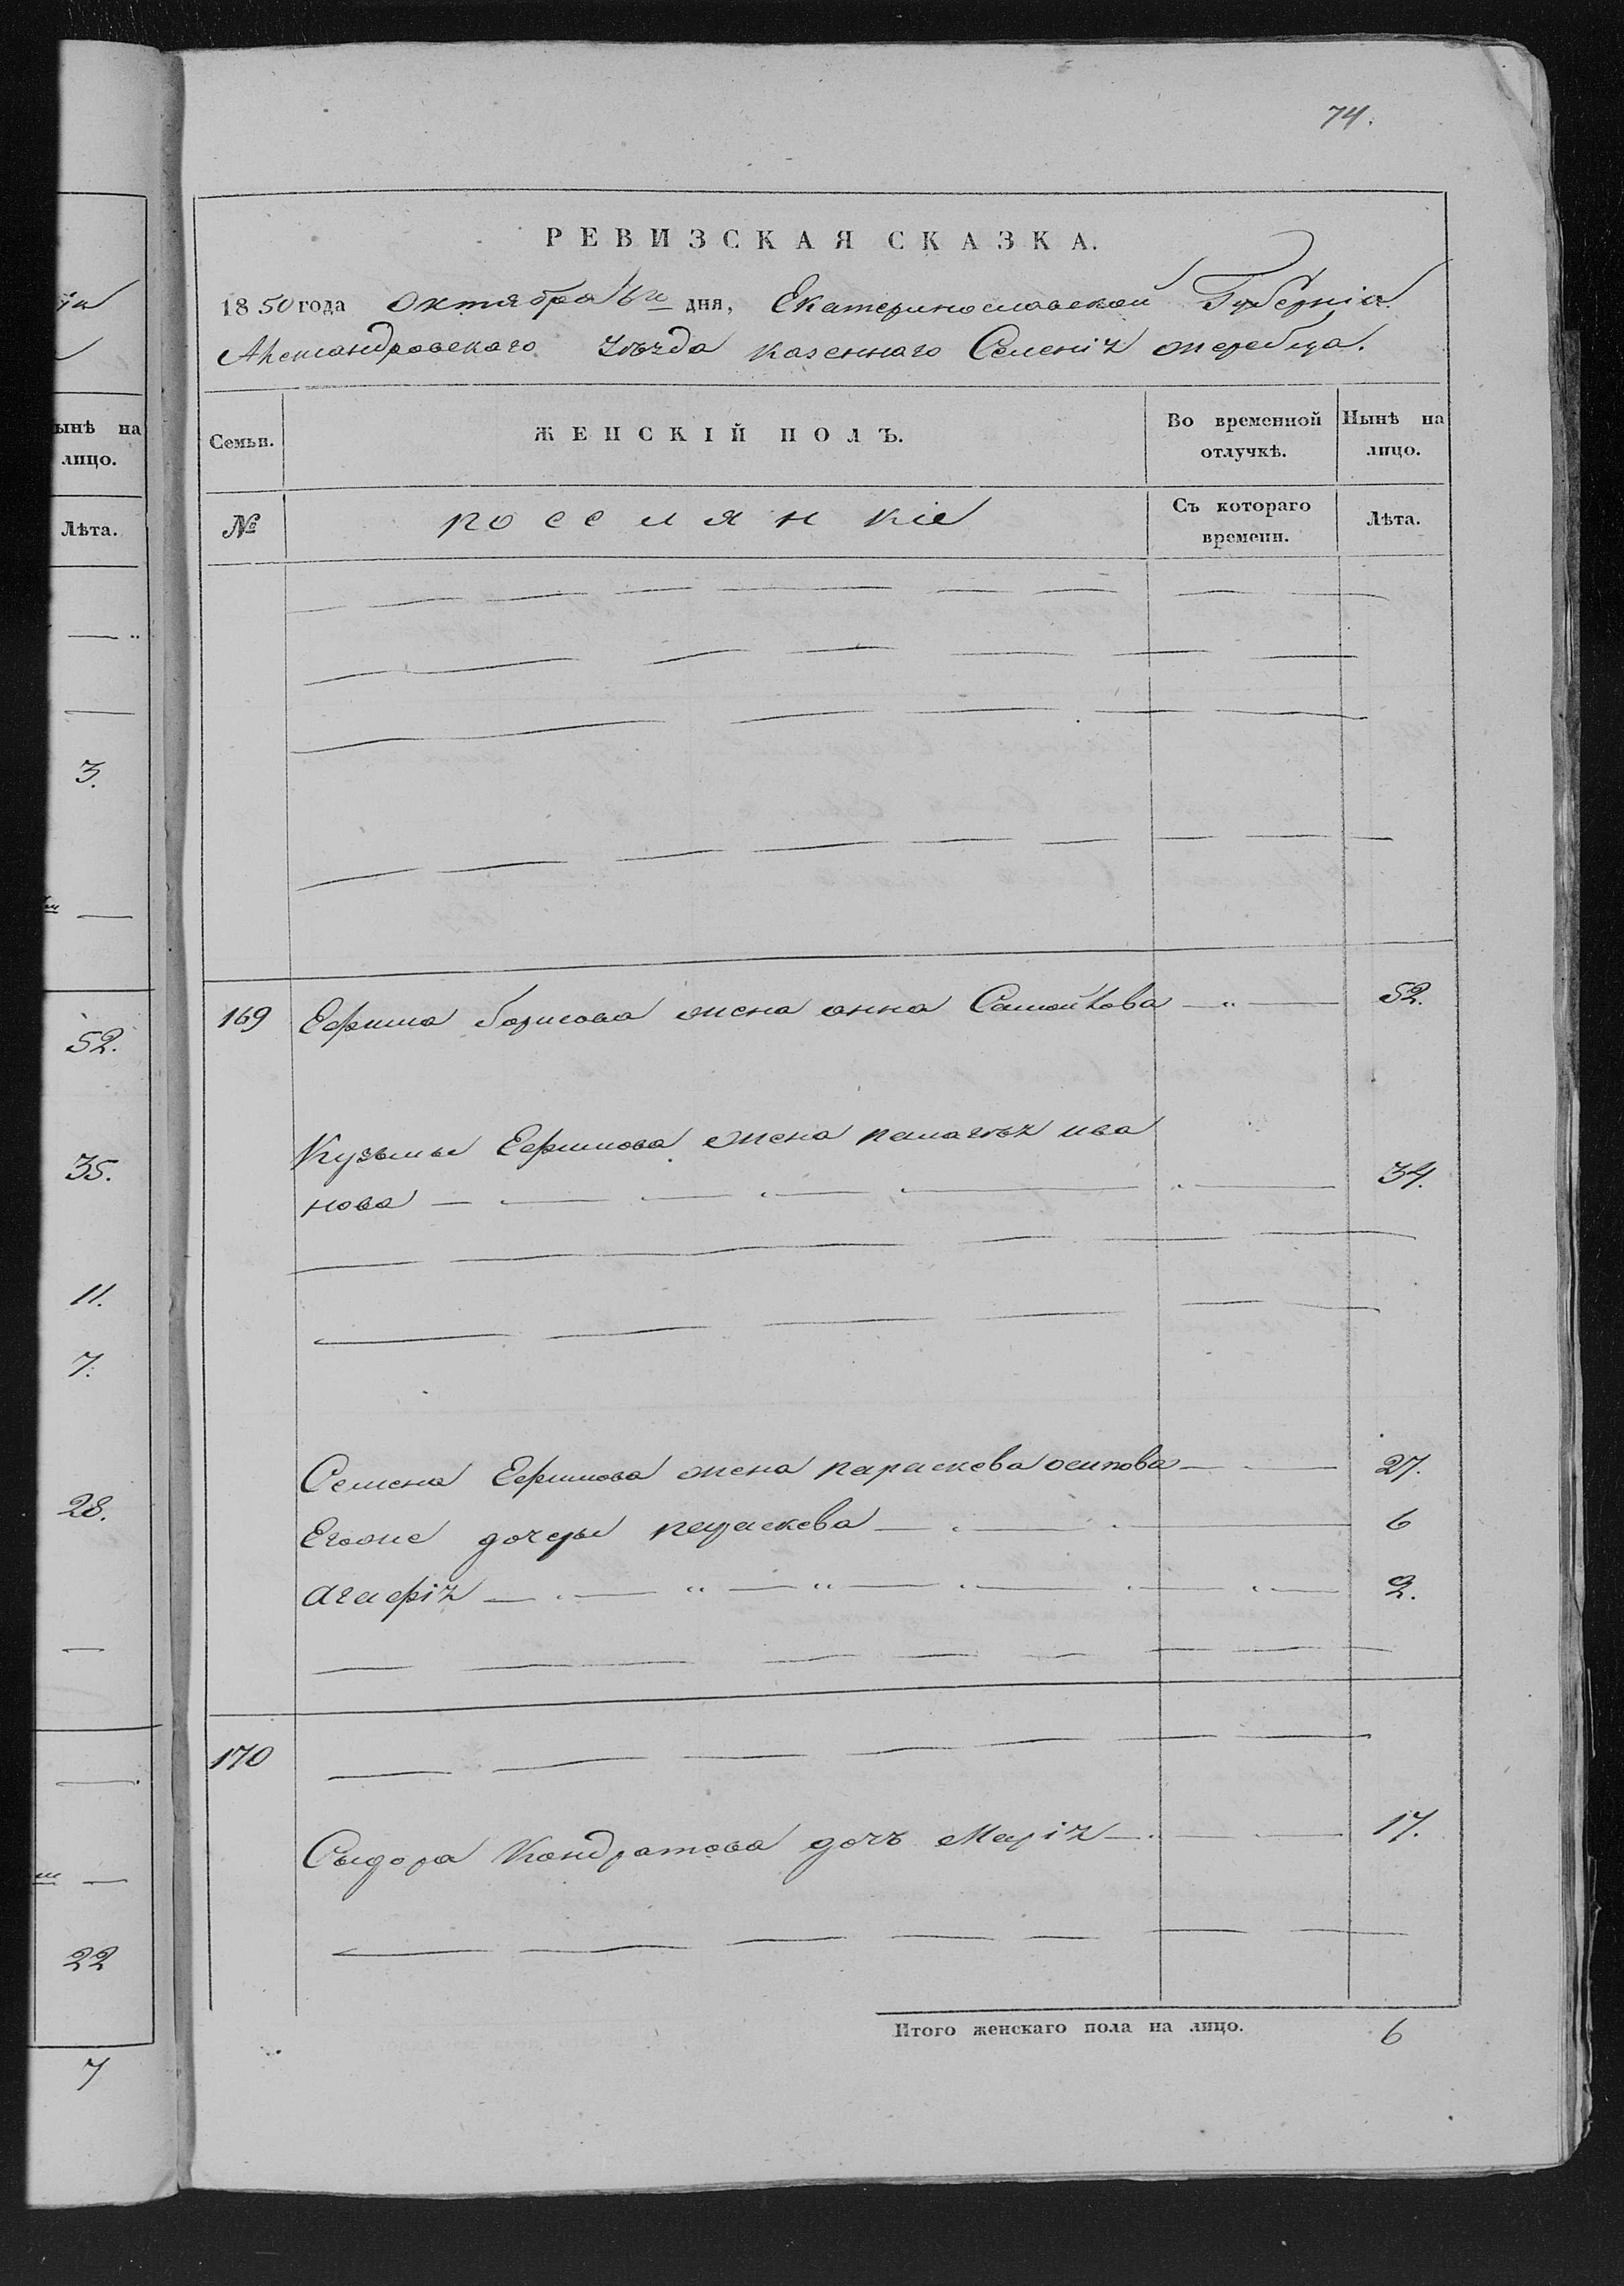 74.
РЕВИЗСКАЯ СКАЗКА.
1850 года Октября дня, Екатеринославской Губерніи
Александровскаго уѣзда казеннаго Селенія
ынѣ на лицо.
Лѣта.
3.
52.
35.
11.
7.
28.
22
7
Семьи. ЖЕНСКІЙ ПОЛЪ. Во временной отлучкѣ. Нынѣ на лицо.
№ Съ котораго времени. Лѣта.
169 Ефима борисова жена анна Самойлова 52.
Кузьмы Ефимова жена пелагѣя ива
нова 34.
Семена Ефимова жена параскева осипова 27.
Егоже дочеры параскева 6
агафія 2.
170
Сыдора Кондратова дочъ Марія 17.
Итого женскаго пола на лицо. 6